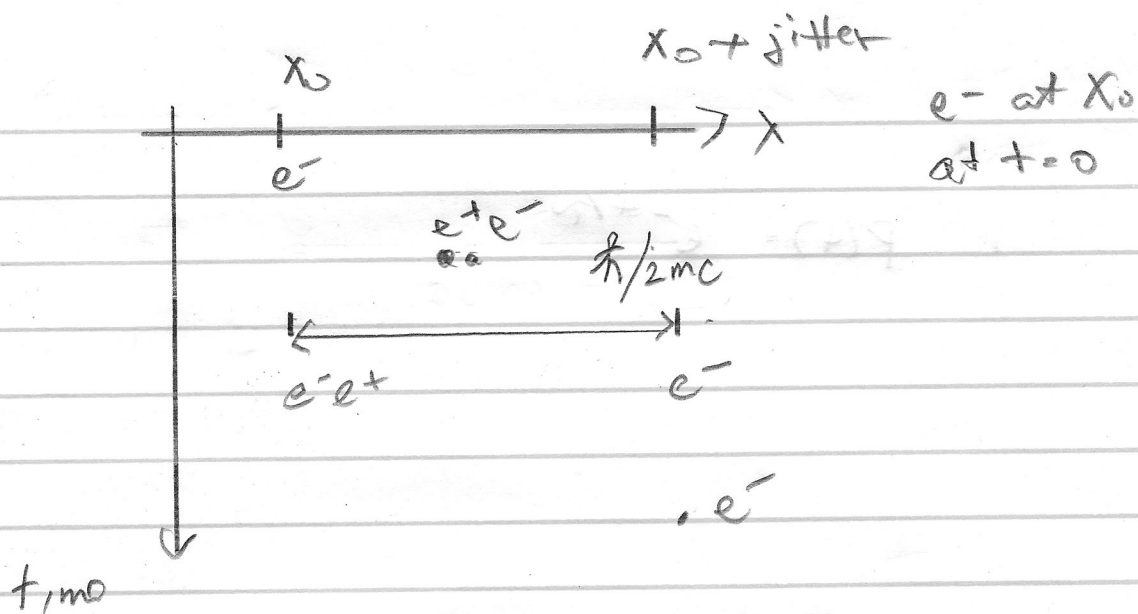 x₀
x₀ + jitter
x
e⁻ at x₀
at t=0
e⁻
e⁺e⁻
ħ/2mc
e⁻e⁺
e⁻
. e⁻